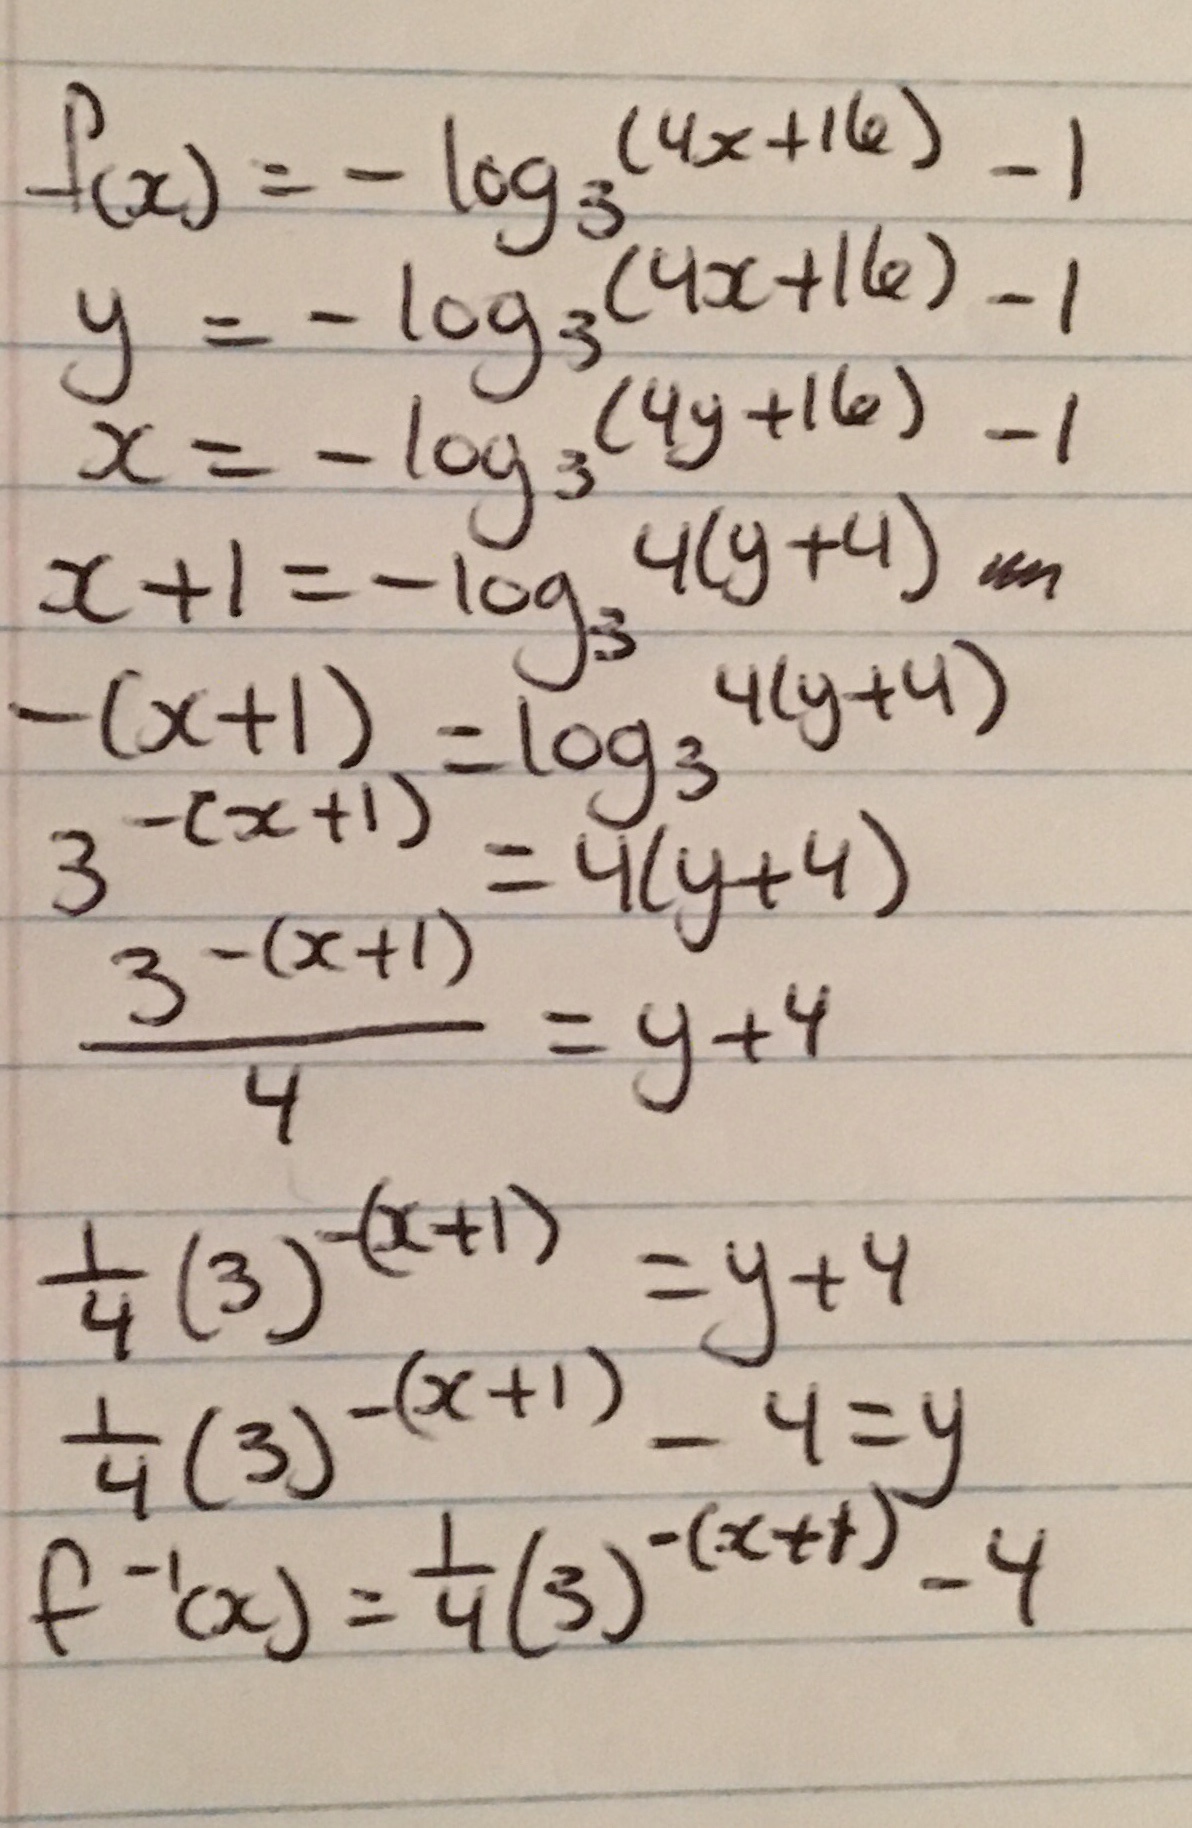 f(x) = -log₃(4x+16) - 1
y = -log₃(4x+16) - 1
x = -log₃(4y+16) - 1
x+1 = -log₃ 4(y+4)
-(x+1) = log₃ 4(y+4)
3^-(x+1) = 4(y+4)
3^-(x+1) / 4 = y+4
1/4 (3)^-(x+1) = y+4
1/4 (3)^-(x+1) - 4 = y
f⁻¹(x) = 1/4 (3)^-(x+1) - 4